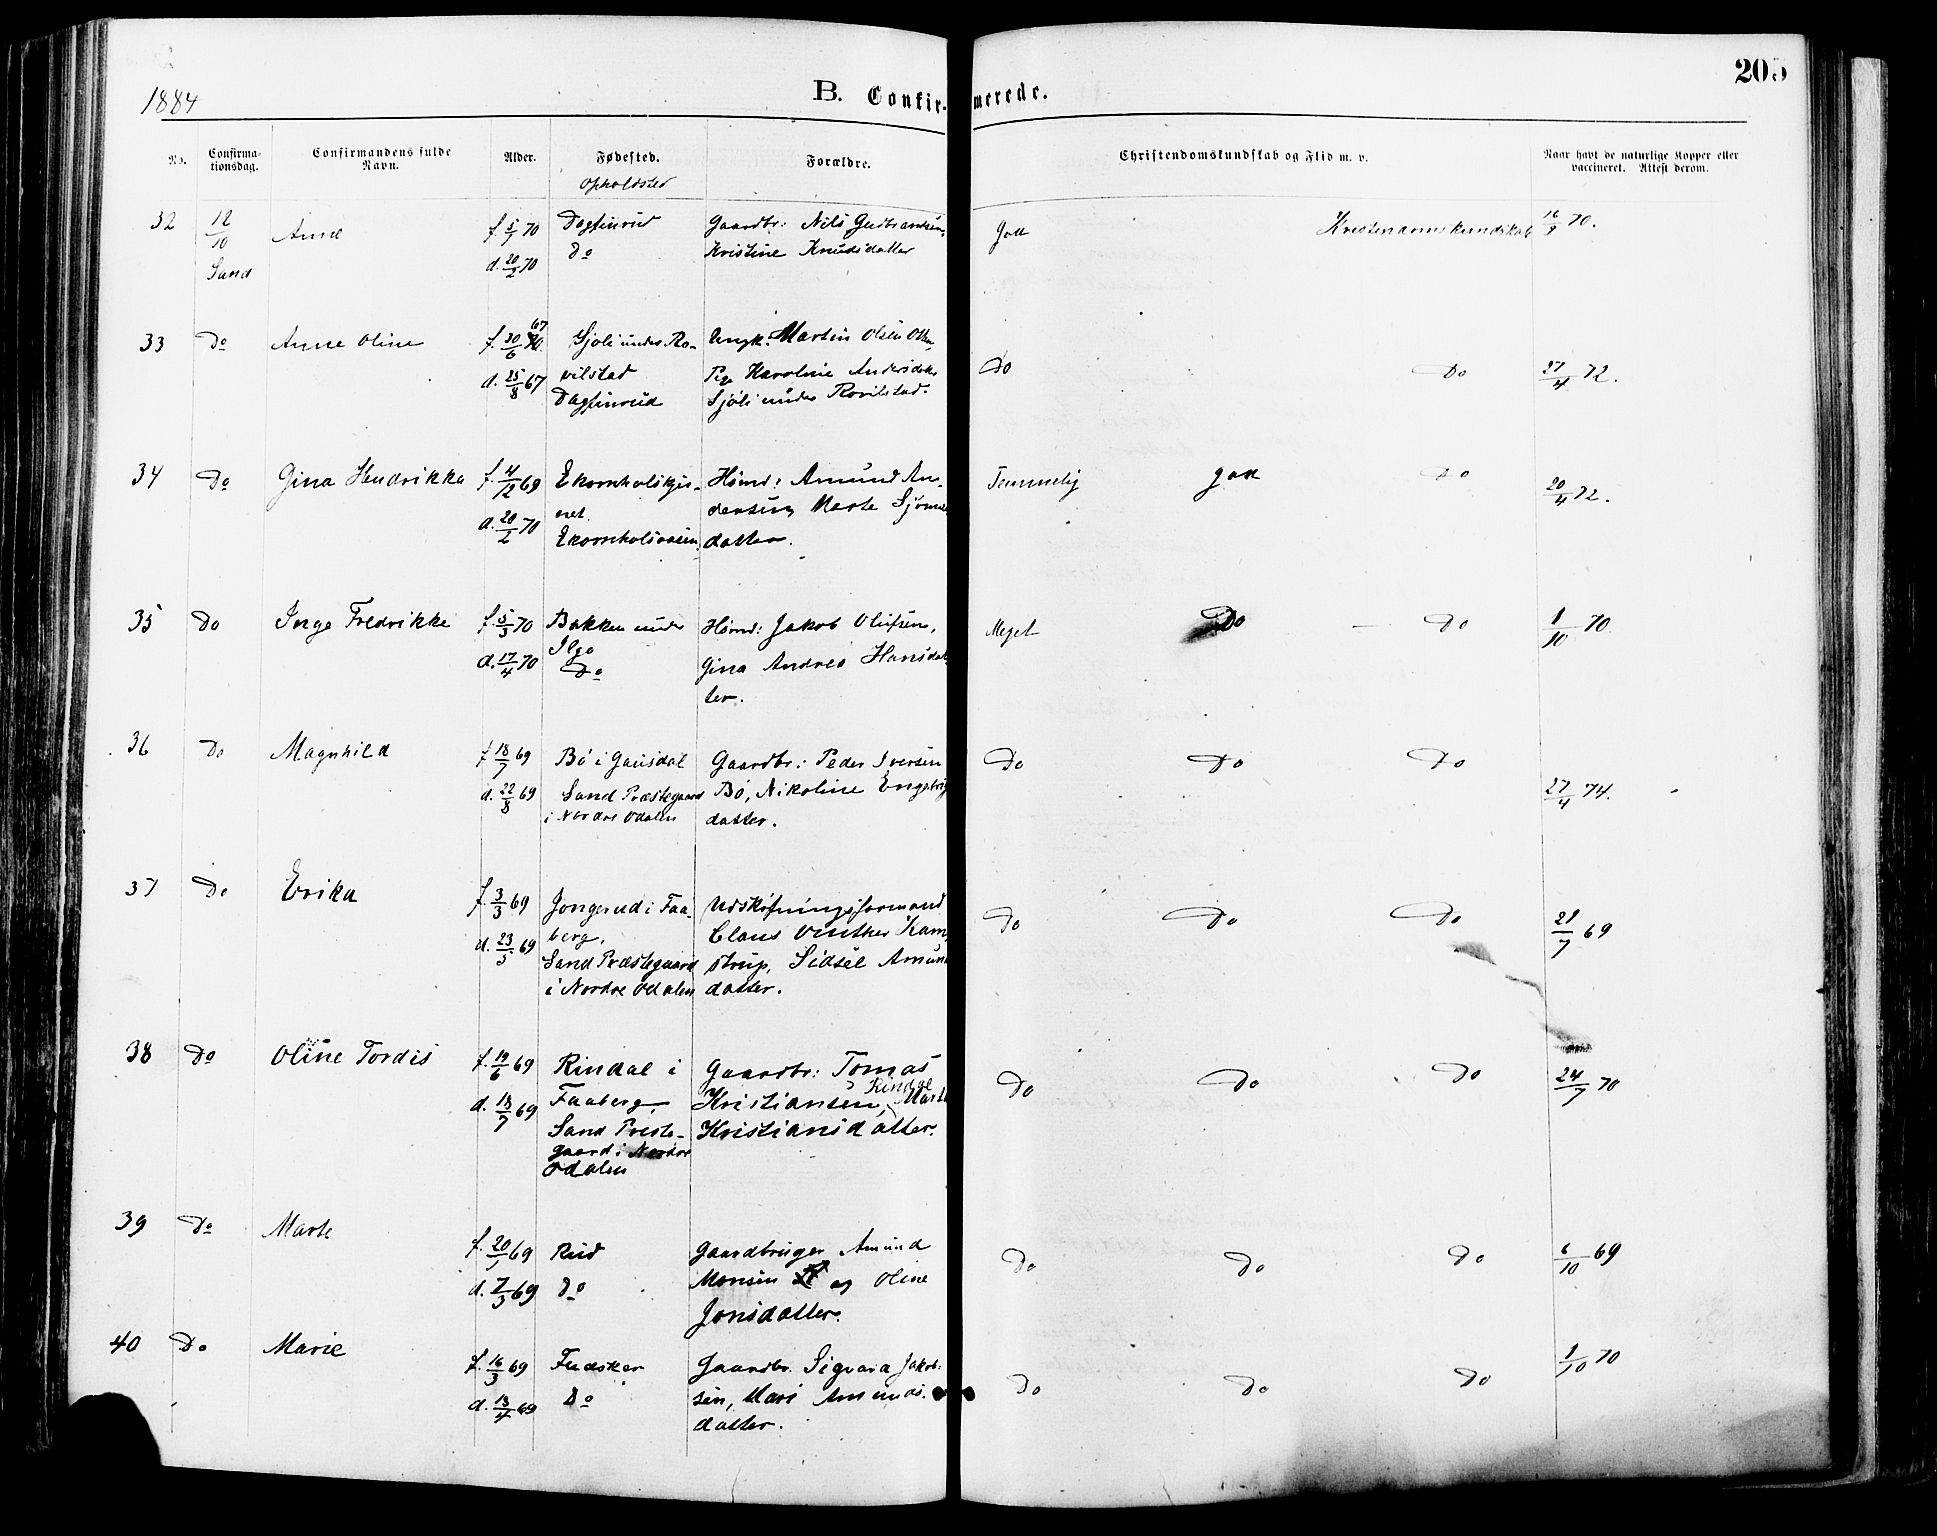 1884
B. Confir-
merede.
205
No.
Confirma-
tionsdag.
Confirmandens fulde
Navn.
Alder.
Fødested.
Opholdsted
Forældre.
Christendomskundskab og Flid m. v.
Naar havt de naturlige Kopper eller
vaccineret. Attest derom.
32 12/10 Anne f. 5/1 70 Dagfinrud Gaardbr: Nils Gudbrandsen, god Kristendomskundskab 16/9 70.
Sand d. 20/2 70 Do Kristine Knudsdatter
33 Do Anne Oline f. 30/6 70 67 Sjøli under Ro- Ungk: Martin Olsen Do Do 27/4 72.
d. 25/8 67 vilstad Pige Karoline Andersdtr
Dagfinrud Sjøli under Rovilstad.
34 Do Gina Hendrikka f. 4/12 69 Ekornholskjer- Hsmd: Amund An- Temmelig god Do 20/4 72.
d. 20/2 70 net. dersen, Marte
Ekornholsaasen datter.
35 Do Inga Fredrikke f. 5/3 70 Bakken under Hsmd: Jakob Olufsen, Meget Do — Do 1/10 70.
d. 17/4 70 Ilga Gina Andrea Hansdat
Do ter.
36 Do Magnhild f 18/7 69 Bø i Gausdal Gaardbr: Peder Iversen Do Do Do 27/4 74.
d. 22/8 69 Sand Præstegaard Bø, Nikoline Engebrigt
i Nordre Odalen datter.
37 Do Erika f. 3/3 69 Jongerud i Faa- Udskiftningsformand Do Do Do 28/7 69
d. 23/5 69 berg, Claus Vinther Kam
Sand Præstegaard strup, Sidsel Amund
i Nordre Odalen datter.
38 Do Oline Tordis f. 19/6 69 Rindal i Gaardbr: Tomas Do Do Do 24/7 70
Rindal
d. 18/7 69 Faaberg, Kristiansen, Marte
Sand Preste- Kristiansdatter.
gaard i Nordre
Odalen
39 Do Marte f. 20/1 69 Rud Gaardbruger Amund Do Do Do 6/10 69
d. 7/3 69 Do Monsen og Oline
Jonsdatter.
40 Do Marie f. 16/3 69 Fudsker Gaardbr. Sigvard Jakob- Do Do Do 1/10 70
d. 13/4 69 Do sen, Mari Amunds.
datter.